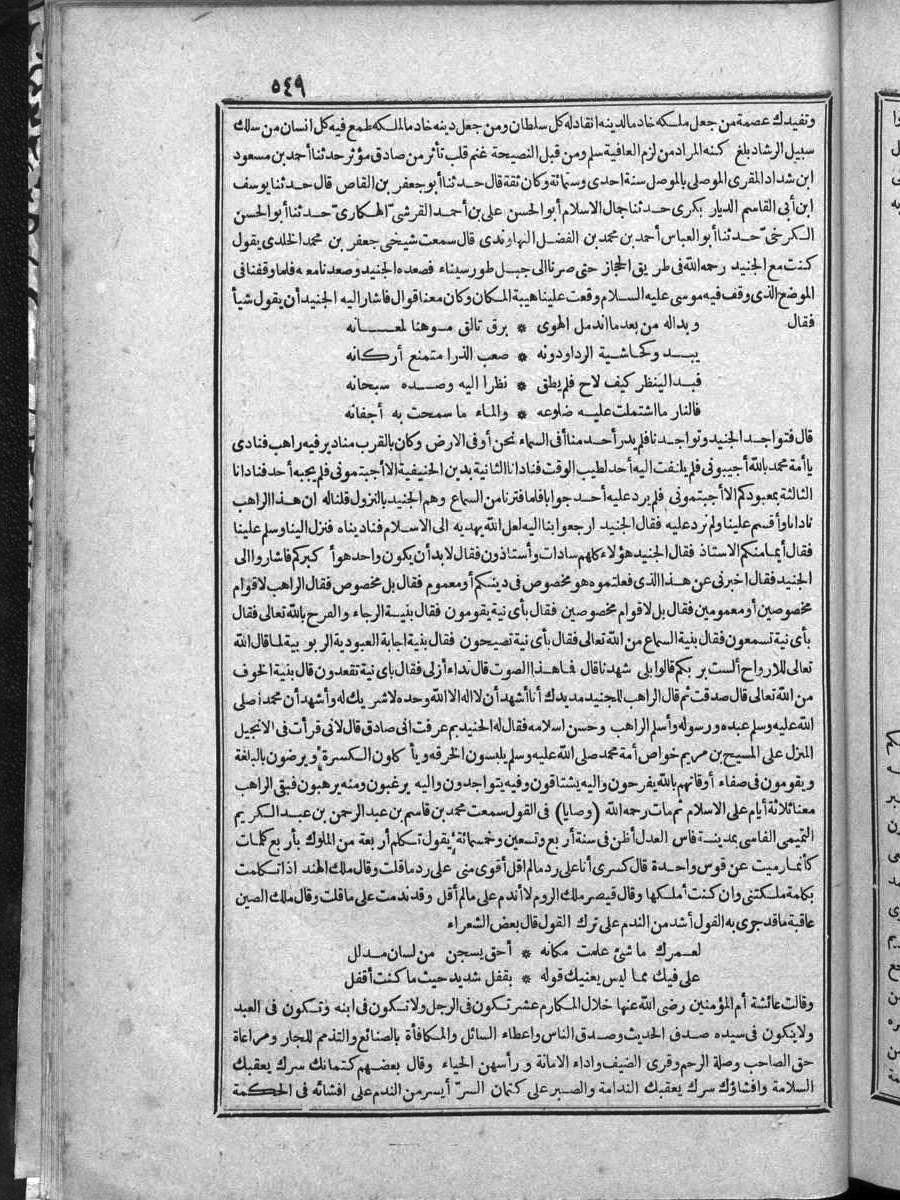 ٥٤٩
وتفيدك عصمة من جعل ملكه خادما لدينه انقاد له كل سلطان ومن جعل دينه خادما لملكه طمع فيه كل انسان من سلك
سبيل الرشاد بلغ كنه المراد من لزم العافية سلم ومن قبل النصيحة غنم قلب تأثر من صادق مؤثر حدثنا أحمد بن مسعود
ابن شداد المقرى الموصلى بالموصل سنة احدى وستمائة وكان ثقة قال حدثنا أبو جعفر بن القاص قال حدثنا يوسف
ابن أبى القاسم الديار بكرى حدثنا جمال الاسلام أبو الحسن على بن أحمد القرشىّ الهكارىّ حدثنا أبو الحسن
الكرخىّ حدثنا أبو العباس أحمد بن محمد بن الفضل النهاوندى قال سمعت شيخى جعفر بن محمد الخلدى يقول
كنت مع الجنيد رحمه الله فى طريق الحجاز حتى صرنا الى جبل طور سيناء فصعده الجنيد وصعدنا معه فلما وقفنا فى
الموضع الذى وقف فيه موسى عليه السلام وقعت علينا هيبة المكان وكان معنا قوال فاشار اليه الجنيد أن يقول شيأ
فقال وبداله من بعد ما اندمل الهوى * برق تالق موهنا لمعانه
يبدو كحاشية الرداودونه * صعب الذرا متمنع أركانه
فبدا لينظر كيف لاح فلم يطق * نظرا اليه وصده سبحانه
فالنار ما اشتملت عليه ضلوعه * والماء ما سمحت به أجفانه
قال فتواجد الجنيد وتواجدنا فلم يدر أحد منا أفى السماء نحن أو فى الارض وكان بالقرب منا دير فيه راهب فنادى
يا أمة محمد بالله أجيبونى فلم يلتفت اليه أحد لطيب الوقت فنادانا الثانية بدين الحنيفية الا أجبتمونى فلم يجبه أحد فنادانا
الثالثة بمعبودكم الا أجبتمونى فلم يرد عليه أحد جوابا فلما فترنا من السماع وهم الجنيد بالنزول قلنا له ان هذا الراهب
نادانا وأقسم علينا ولم نرد عليه فقال الجنيد ارجعوا بنا اليه لعل الله يهديه الى الاسلام فناديناه فنزل الينا وسلم علينا
فقال أيما منكم الاستاذ فقال الجنيد هؤلاء كلهم سادات وأستاذون فقال لا بد أن يكون واحد هو أكبركم فاشاروا الى
الجنيد فقال اخبرنى عن هذا الذى فعلتموه هو مخصوص فى دينكم أو معموم فقال بل مخصوص فقال الراهب لاقوام
مخصوصين أو معمومين فقال بل لاقوام مخصوصين فقال بأى نية يقومون فقال بنية الرجاء والفرح بالله تعالى فقال
بأى نية تسمعون فقال بنية السماع من الله تعالى فقال بأى نية تصيحون فقال بنية اجابة العبودية الربوبية لما قال الله
تعالى للارواح ألست بربكم قالوا بلى شهدنا قال فما هذا الصوت قال نداء أزلى فقال باى نية تقعدون قال بنية الخوف
من الله تعالى قال صدقت ثم قال الراهب للجنيد مد يدك أنا أشهد أن لا اله الا الله وحده لا شريك له وأشهد أن محمدا صلى
الله عليه وسلم عبده ورسوله وأسلم الراهب وحسن اسلامه فقال له الجنيد بم عرفت انى صادق قال لانى قرأت فى الانجيل
المنزل على المسيح بن مريم خواص أمة محمد صلى الله عليه وسلم يلبسون الخرقه ويأكلون الكسرة ويرضون بالبلغة
ويقومون فى صفاء أوقاتهم بالله يفرحون واليه يشتاقون وفيه يتواجدون واليه يرغبون ومنه يرهبون فبقى الراهب
معنا ثلاثة أيام على الاسلام ثم مات رحمه الله (وصايا) فى القول سمعت محمد بن قاسم بن عبد الرحمن بن عبد الكريم
التميمى الفاسى بمدينة فاس العدل أظن فى سنة أربع وتسعين وخمسمائة يقول تكلم أربعة من الملوك بأربع كلمات
كأنما رميت عن قوس واحدة قال كسرى أنا على رد ما لم اقل أقوى منى على رد ما قلت وقال ملك الهند اذا تكلمت
بكلمة ملكتنى وان كنت أملكها وقال قيصر ملك الروم لا أندم على ما لم أقل وقد ندمت على ما قلت وقال ملك الصين
عاقبة ما قد جرى به القول أشد من الندم على ترك القول قال بعض الشعراء
لعمرك ما شئ علمت مكانه * أحق بسجن من لسان مدلل
على فيك مما ليس يعنيك قوله * بقفل شديد حيث ما كنت أقفل
وقالت عائشة أم المؤمنين رضى الله عنها خلال المكارم عشر تكون فى الرجل ولا تكون فى ابنه وتكون فى العبد
ولا يكون فى سيده صدق الحديث وصدق الناس واعطاء السائل والمكافأة بالصنائع والتذمم للجار ومراعاة
حق الصاحب وصلة الرحم وقرى الضيف واداء الامانة ورأسهن الحياء وقال بعضهم كتمانك سرك يعقبك
السلامة وافشاؤك سرك يعقبك الندامة والصبر على كتمان السرّ أيسر من الندم على افشائه فى الحكمة